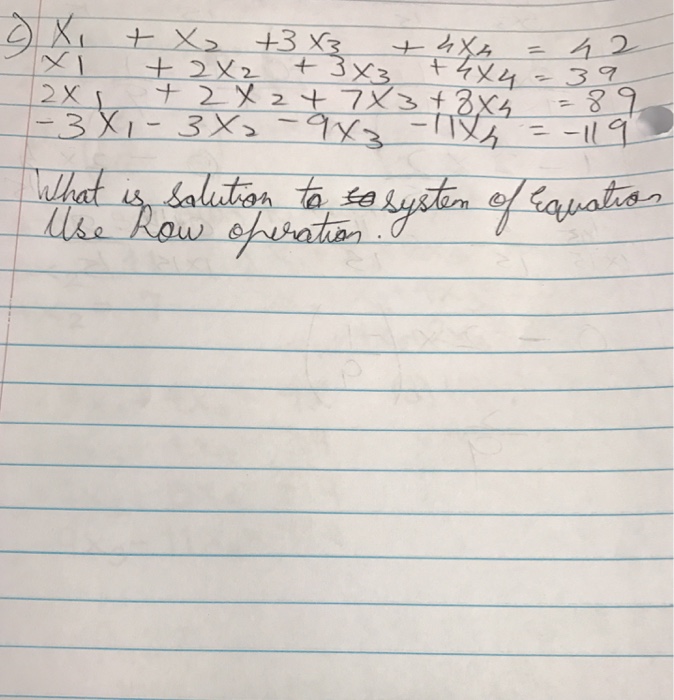 c) X₁ + X₂ + 3X₃ + 4X₄ = 42
X1 + 2X₂ + 3X₃ + 4X4 = 39
2X₁ + 2X₂ + 7X₃ + 8X₄ = 89
-3X₁ - 3X₂ - 9X₃ - 11X₄ = -119
What is solution to system of Equation
Use Row operation.